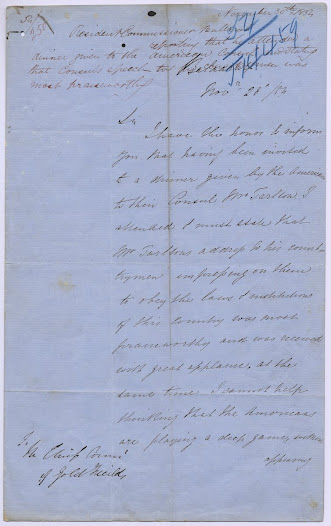 November 30th 1854
Resident Commissioner
reporting that he attended a
dinner given to the American Consul and states
that Consul's speech to his
most praiseworthy
Novr 28/54
Sir
I have the honor to inform
you that having been invited
to a dinner given by the Americans
to their Consul Mr Tarleton I
attended I must state that
Mr Tarltons address to his count-
rymen impressing on them
to obey the laws & institutions
of this Country was most
praiseworthy and was received
with great applause, at the
same time I cannot help
thinking that the Americans
are playing a deep game, when
appearing
To
The Chief Commr
of Gold Fields